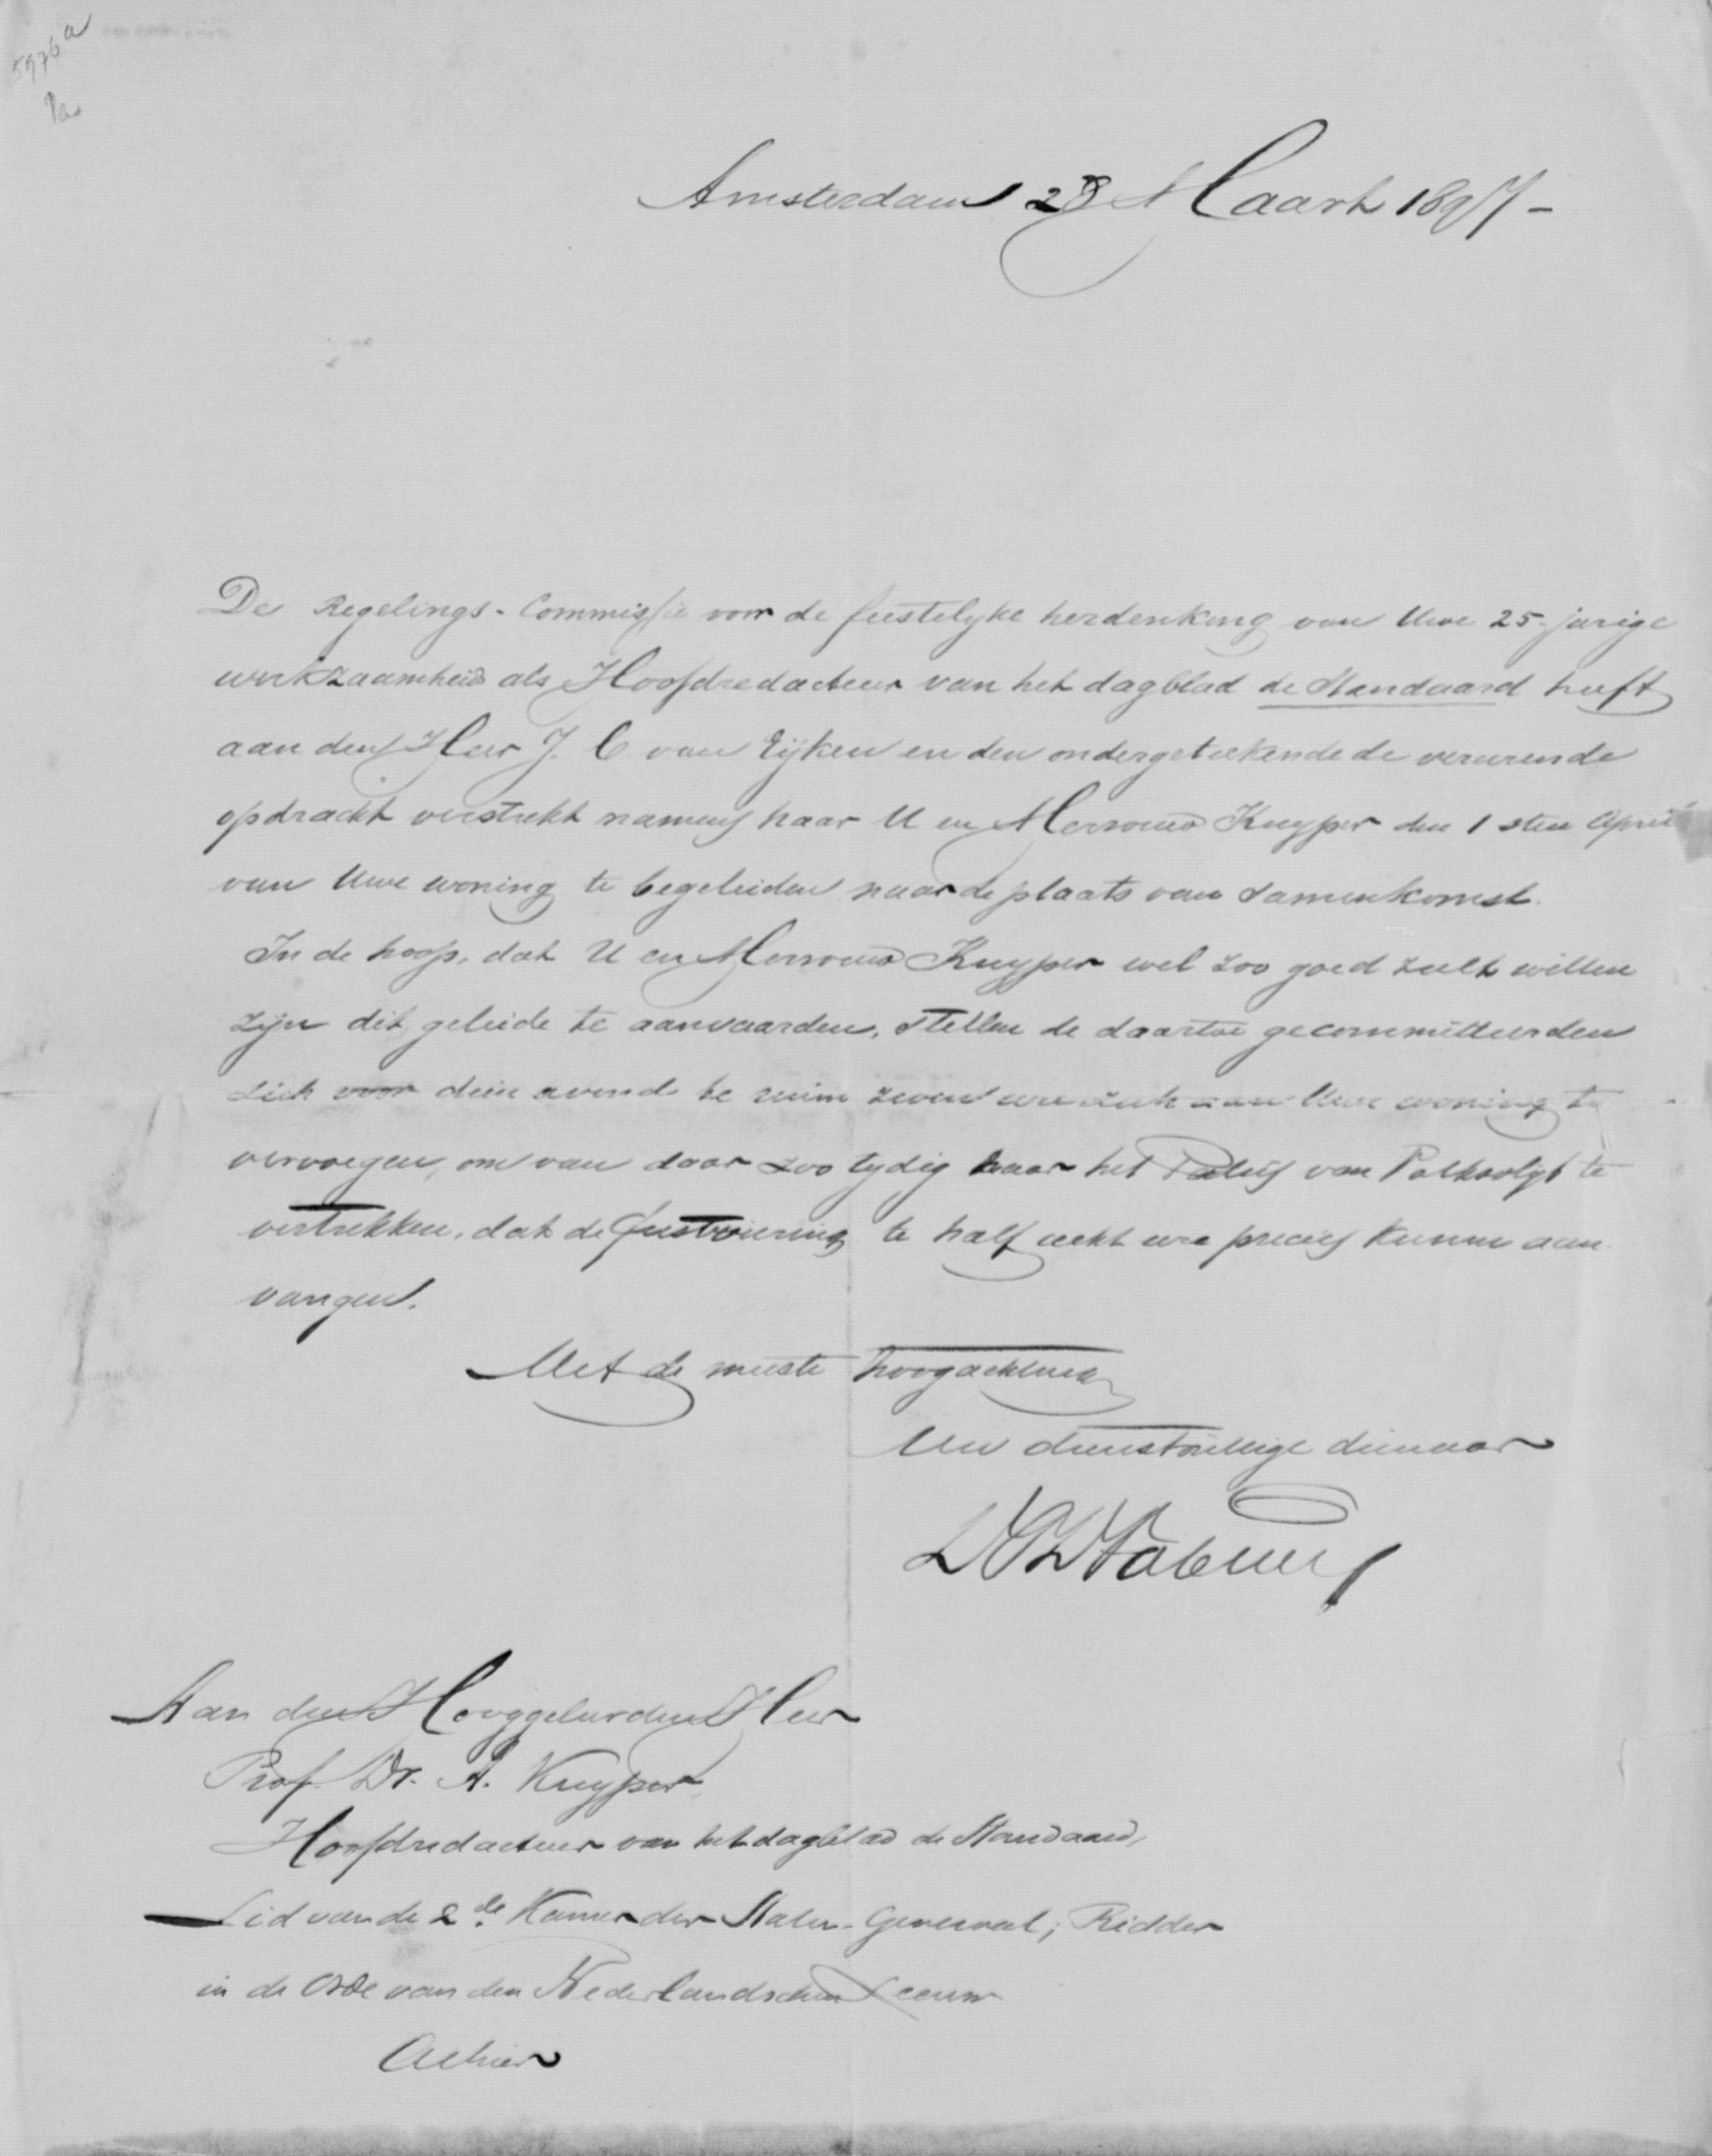 5976a
Amsterdam 28 Maart 1897 -
De Regelings-Commissie voor de feestelyke herdenking van Uwe 25-jarige
werkzaamheid als Hoofdredacteur van het dagblad de Standaard heeft
aan den Heer J. C. van Eijken en den ondergeteekende de vereerende
opdracht verstrekt namens haar U en Mevrouw Kuyper den 1 sten April
van Uwe woning te begeleiden naar de plaats van samenkomst.
In de hoop, dat U en Mevrouw Kuyper wel zoo goed zult willen
zijn dit geleide te aanvaarden, stellen de daartoe gecommitteerden
zich voor dien avond te ruim zeven ure zich aan Uwe woning te
vervoegen, om van daar zoo tydig naar het Paleis van Volksvlyt te
vertrekken, dat de feestviering te half acht ure precies kunne aan
vangen.
Met de meeste hoogachting
Uw dienstwillige dienaar
Aan den Hooggeleerden Heer
Prof. Dr. A. Kuyper,
Hoofdredacteur van het dagblad de Standaard,
Lid van de 2de Kamer der Staten-Generaal; Ridder
in de Orde van den Nederlandschen Leeuw
Alhier